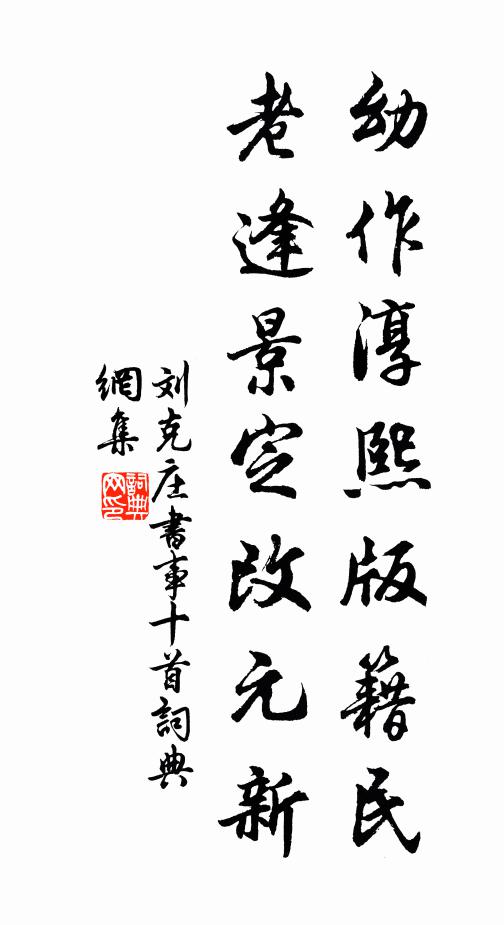 幼作淳熙版籍民
老逢景定改元新
刘克庄書事十首詞典
網集
詞典
网印